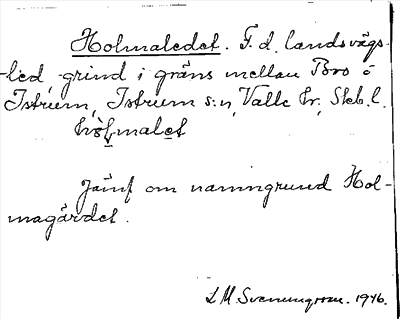 Holmaledet. F. d. landsvägs-
-led, grind i gräns mellan Bro o
Istrum, Istrum s:n, Valle hr, Skb. l.
Jämf om namngrund Hol-
magärdet.
L M Svenungsson. 1946.